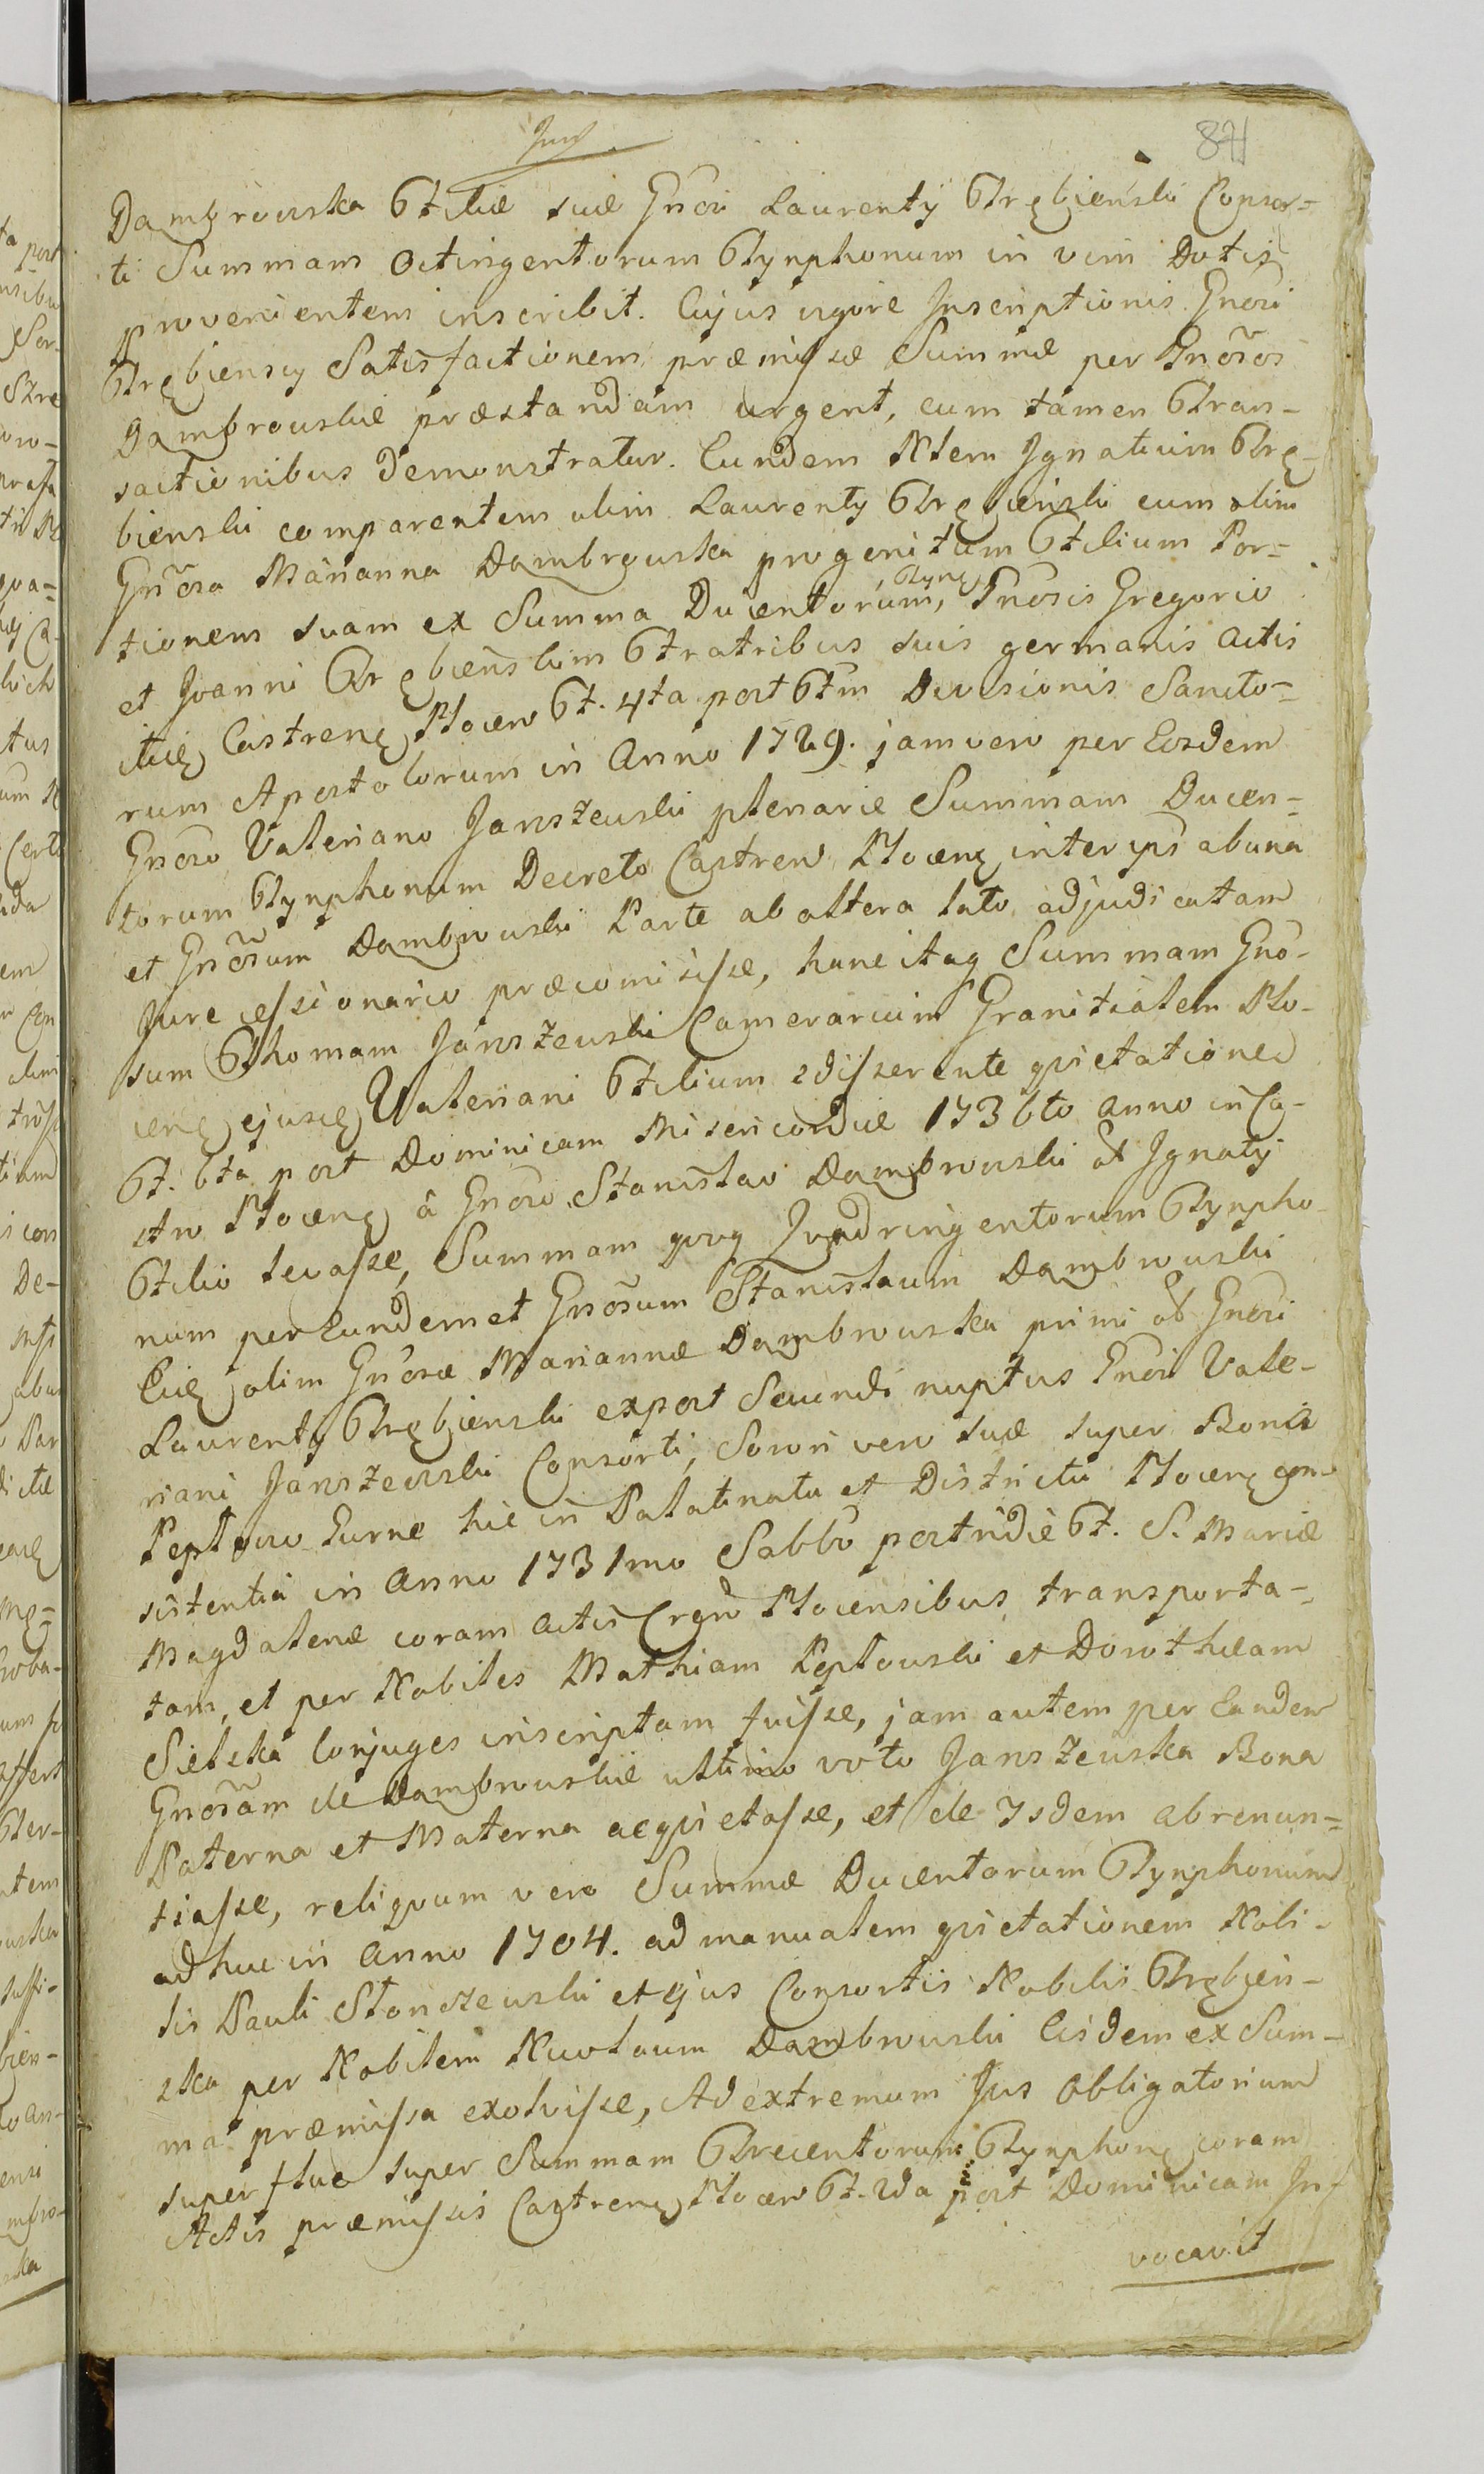 871
Dambrowska Filiæ suæ Gnosi Laurentÿ Trębienski Consor=
ti Summam Octingentorum Tynphonum in vim Dotis
provenientem inscribit. Cujus vigore Inscriptionis Gnosi
Trębienscy Satisfactionem præmissæ Summæ per Gnosos
Dambrowskie præstandam urgent, cum tamen Tran-
sactionibus demonstratur. Eundem Nlem Ignatium Trę-
bienski comparentem olim Laurentÿ Trębienski cum olim
Gnosa Marianna Dambrowska progenitum Filium Por=
tionem suam ex Summa Ducentorum, Tynę Gnosis Gregorio
et Joanni Trębienskim Fratribus suis germanis Actis
itidę Castrenę Plocen F. 4ta post Ftm Divisionis Sancto=
rum Apostolorum in Anno 1729. jam vero per Eosdem
Gnoso Valeriano Janszewski plenarie Summam Ducen=
torum Tynphonum Decreto Castren Plocenę inter ips ab una
et Gnosum Dambrowski Parte ab altera lato adjudicatam
Jure cessionario præcomisisse, hanc itaq Summam Gno-
sum Thomam Janszewski Camerarium Granitialem Plo-
cenę ejusdę Valeriani Filium edisserente qvietatione
F. 6ta post Dominicam Misericordiæ 1736to Anno in Ca-
stro Plocenę â Gnoso Stanislao Dambrowski et Ignatÿ
Filio levasse, Summam qvoq Qvadringentorum Tynpho-
num per Eundemet Gnosum Stanislaum Dambrowski
Eidę olim Gnosæ Mariannæ Dambrowska primi ad Gnosi
Laurentÿ Trębienski expost Secundi nuptus Gnosi Vale-
riani Janszewski Consorti, Sorori vero suæ super Bonis
Peptowo Eurne hic in Palatinatu et Districtu Plocenę con-
sistentia in Anno 1731mo Sabbo postridie F. S. Mariæ
Magdalenæ coram Actis Cren Plocensibus transporta-
tam, et per Nobiles Mathiam Peptowski et Dorotheam
Sielska Conjuges inscriptam fuisse, jam autem per Eandem
Gnosam de Dambrowskie ultimo voto Janszewska Bona
Paterna et Materna acqvietasse, et de Isdem abrenun=
tiasse, reliqvum vero Summæ Ducentorum Tynphonum
adhuc in Anno 1704. ad manualem qvietationem Nobi-
lis Pauli Stonczewski et ejus Consortis Nobilis Trębien-
ska per Nobilem Nicolaum Dambrowski Eisdem ex Sum-
ma præmissa exolvisse, Ad extremum Jus Obligatorium
superflue super Summam Trecentorum Tynphonę coram
Actis præmissis Castrenę Plocen F. 2da post Dominicam In-
vocavit